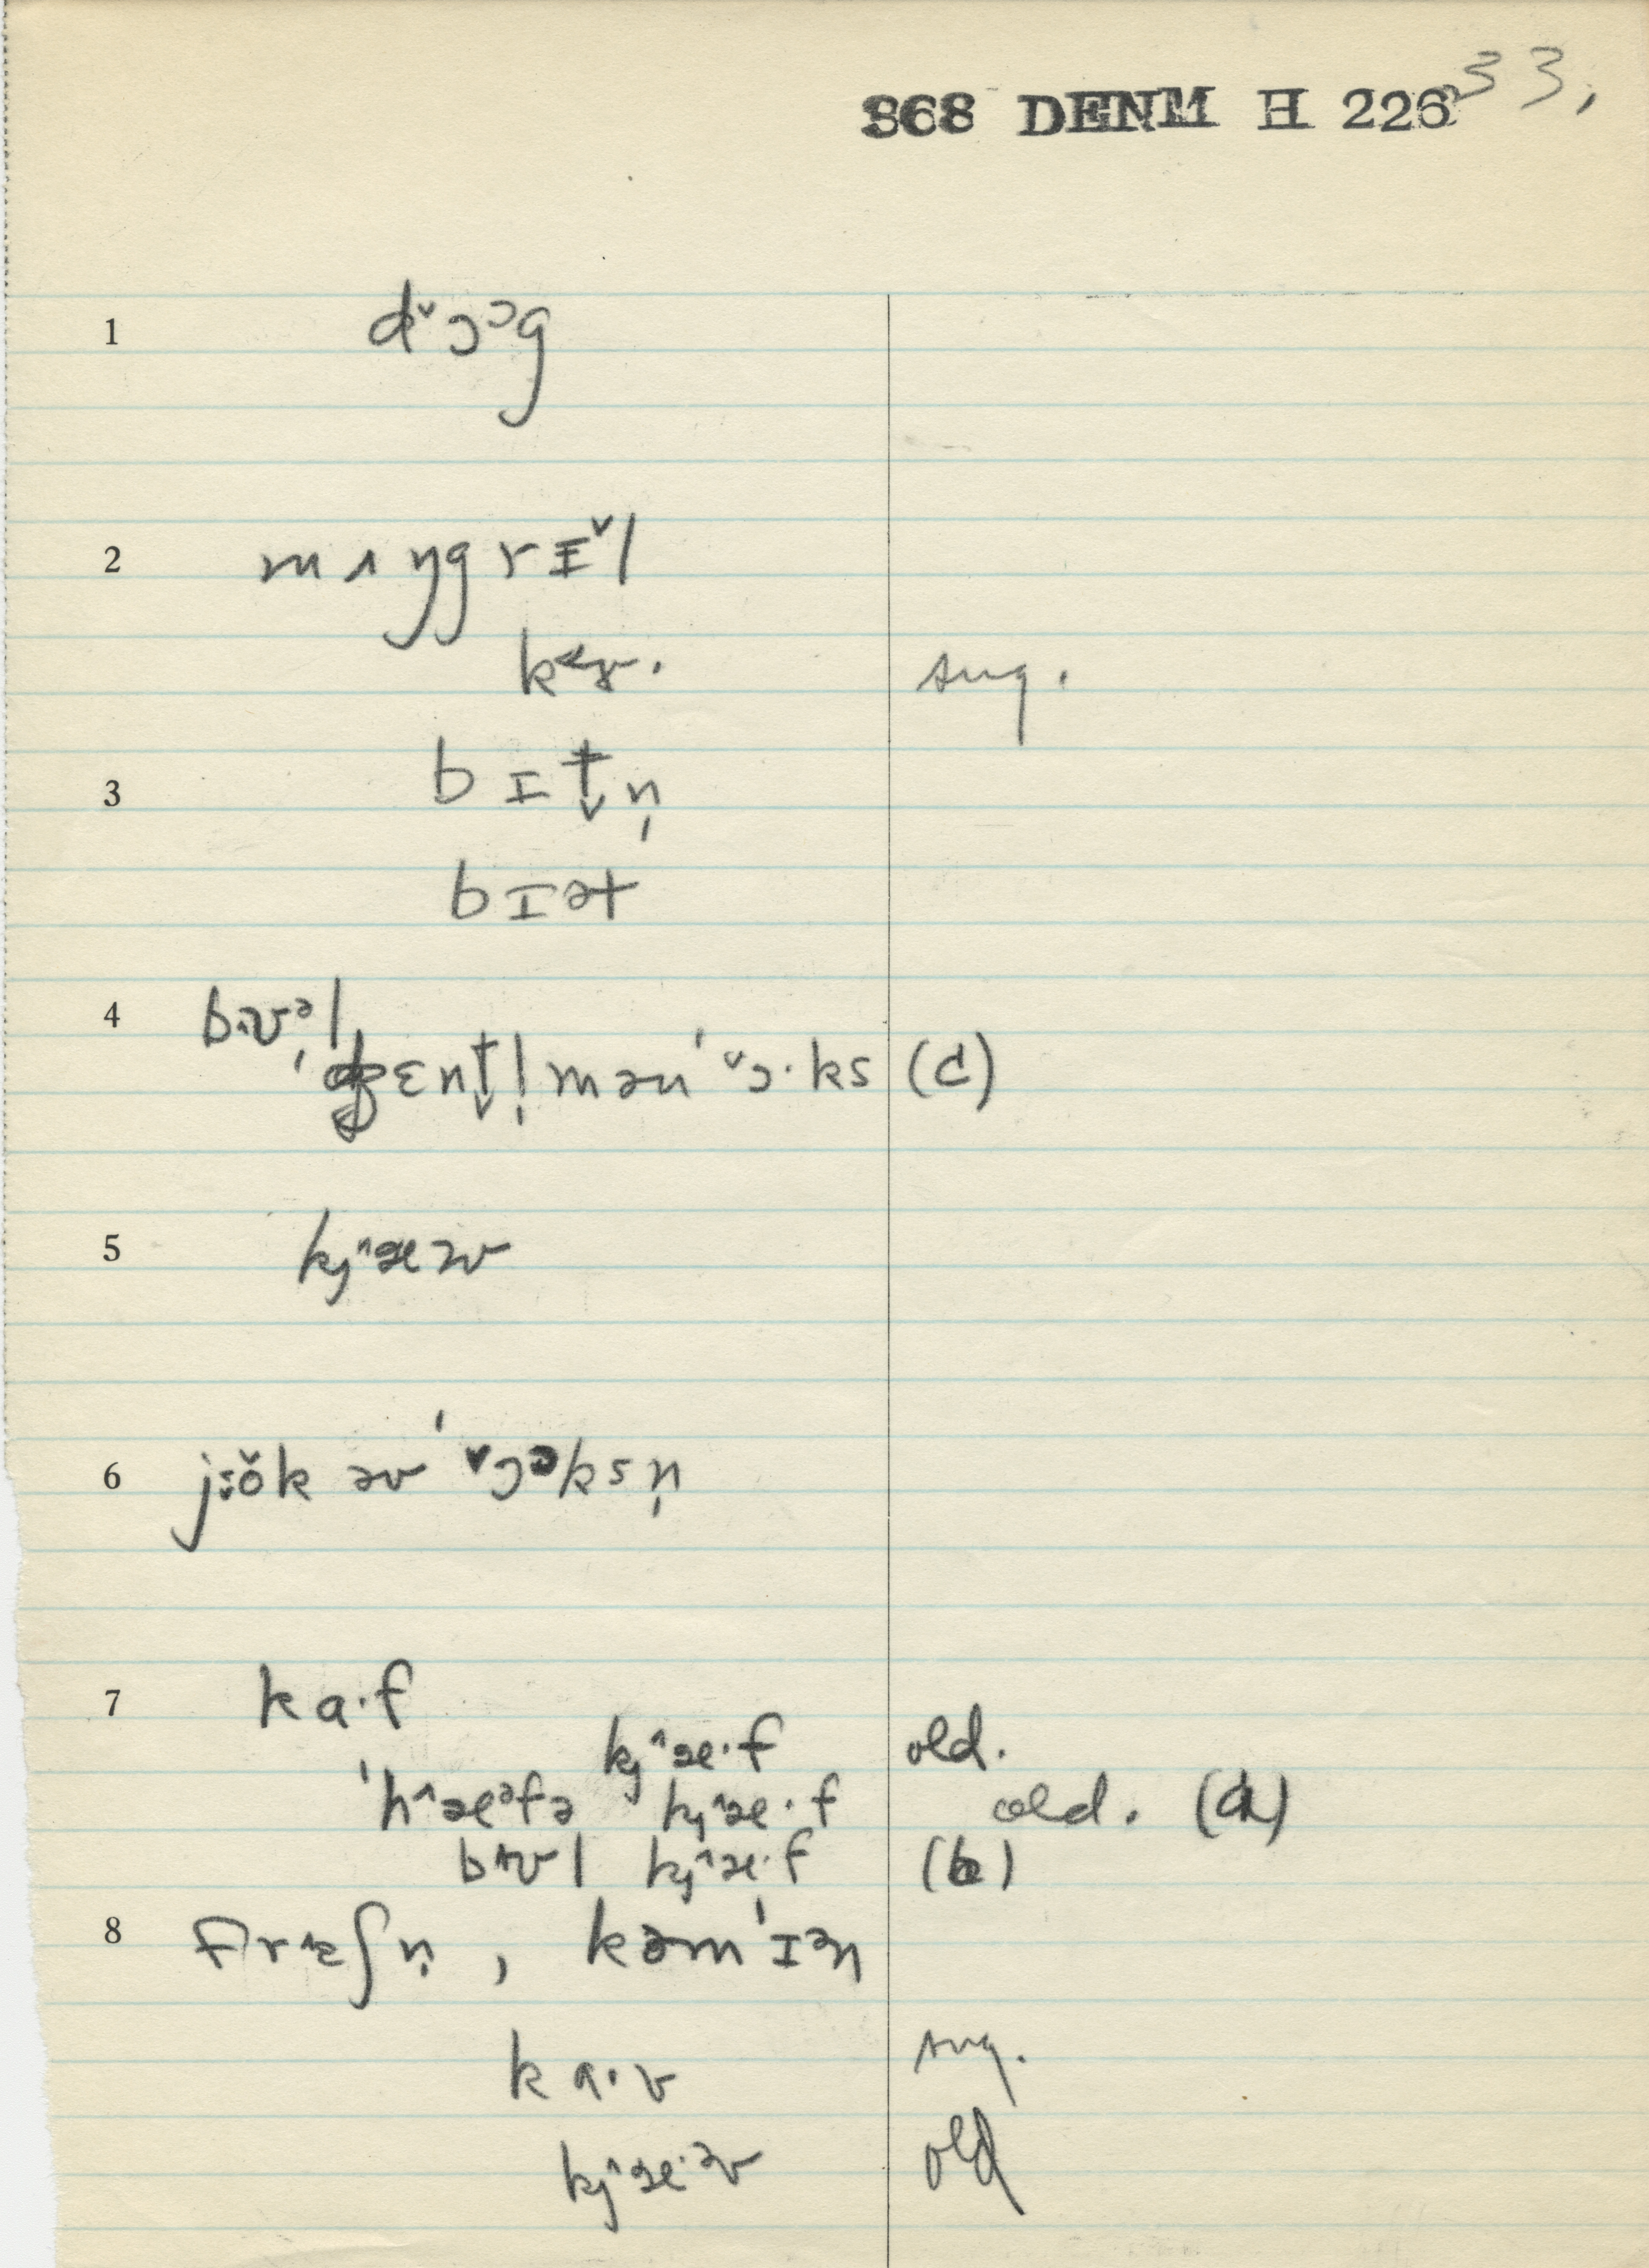 868 DENM H 226 33,
1 dˇɔᵓg
2 mʌŋgrɪˇl
kɝ. sug.
3 bɪt̬n̩
bɪət
4 bʌʊᵊl
ˈdʒɛnt̬l̩mənˈˇɔ·ks (c)
5 kj^æəʊ
6 əvˈˇɔᵊksn̩
7 ka·f
kj^æ·f old.
ˈh^æᵊfə kj^æ·f old.
bʌʊl kj^æ·f (b)
8 fr^ɛʃn̩, kəmˈɪᵊn
ka·v sug.
kj^æ·əv old